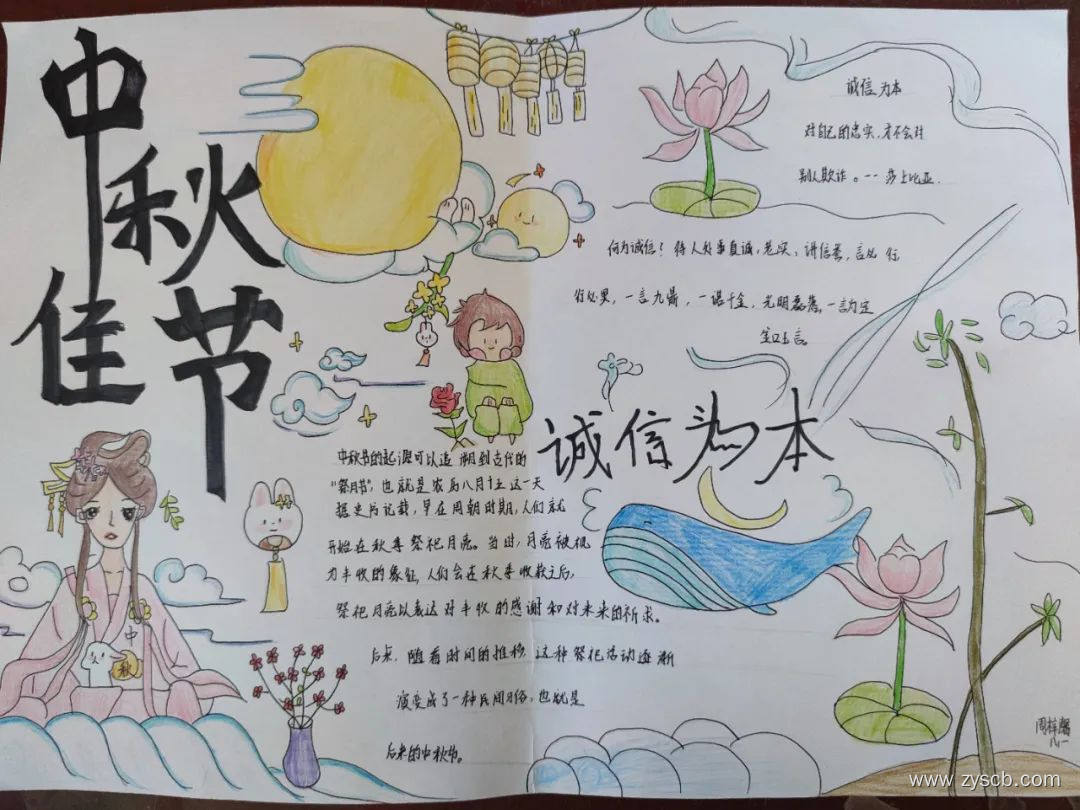 中秋
佳节
诚信为本
对自己的忠实,才不会对
别人欺诈。--莎士比亚.
何为诚信?待人处事真诚,老实、讲信誉,言必行
行必果,一言九鼎,一诺千金,光明磊落。一言为定
诚信为本
中秋节的起源可以追溯到古代的
"祭月节",也就是农历八月十五这一天
据史书记载,早在周朝时期,人们就
开始在秋季祭祀月亮。当时,月亮被视
为丰收的象征,人们会在秋季收获之后,
祭祀月亮以表达对丰收的感谢和对未来的祈求。
后来,随着时间的推移,这种祭祀活动逐渐
演变成了一种民间习俗,也就是
后来的中秋节。
中
秋
八一
www.zyscb.com